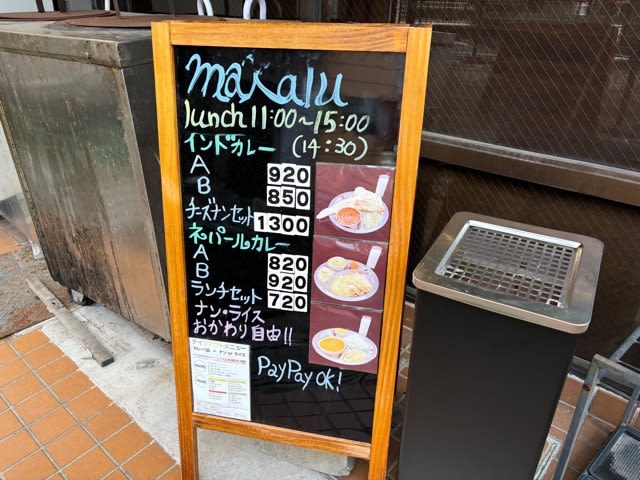 makalu
lunch 11:00～15:00
インドカレー (14:30)
A 920
B 850
チーズナンセット 1300
ネパールカレー
A 820
B 920
ランチセット 720
ナン・ライス
おかわり自由!!
テイクアウトメニュー
PayPay OK!